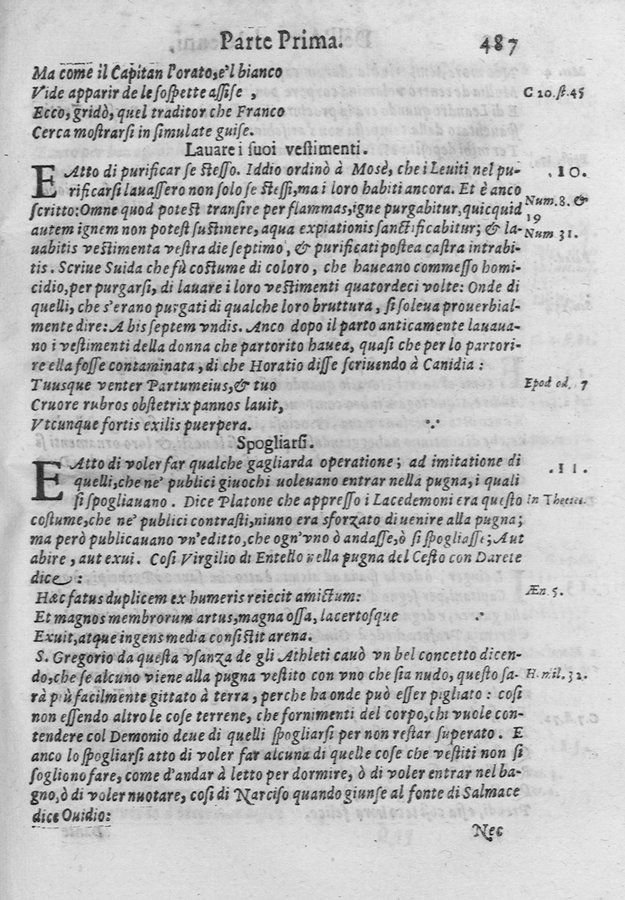 Parte Prima. 487
Ma come il Capitan l'orato, e'l bianco
Vide apparir de le sospette assise,
Ecco, gridò, quel traditor che Franco
C 20. st. 45
Cerca mostrarsi in simulate guise.
Lauare i suoi vestimenti.
E Atto di purificar se stesso. Iddio ordinò à Mosè, che i Leuiti nel pu-
.10.
rificarsi lauassero non solo se stessi, ma i loro habiti ancora. Et è anco
scritto: Omne quod potest transire per flammas, igne purgabitur, quicquid
Num. 8. &
19
autem ignem non potest sustinere, aqua expiationis sanctificabitur; & la-
Num 31.
uabitis vestimenta vestra die septimo, & purificati postea castra intrabi-
tis. Scriue Suida che fù costume di coloro, che haueano commesso homi-
cidio, per purgarsi, di lauare i loro vestimenti quatordeci volte: Onde di
quelli, che s'erano purgati di qualche loro bruttura, si soleua prouerbial-
mente dire: A bis septem vndis. Anco dopo il parto anticamente lauaua-
no i vestimenti della donna che partorito hauea, quasi che per lo partori-
re ella fosse contaminata, di che Horatio disse scriuendo à Canidia:
Tuusque venter Partumeius, & tuo
Epod od. 7
Cruore rubros obstetrix pannos lauit,
Vtcunque fortis exilis puerpera.
Spogliarsi.
E Atto di voler far qualche gagliarda operatione; ad imitatione di
.11.
quelli, che ne' publici giuochi uoleuano entrar nella pugna, i quali
si spogliauano. Dice Platone che appresso i Lacedemoni era questo
In Theetet.
costume, che ne' publici contrasti, niuno era sforzato di uenire alla pugna;
ma però publicauano vn'editto, che ogn'vno ò andasse, ò si spogliasse; Aut
abire, aut exui. Cosi Virgilio di Entello nella pugna del Cesto con Darete
dice:
Hæc fatus duplicem ex humeris reiecit amictum:
Æn 5.
Et magnos membrorum artus, magna ossa, lacertosque
Exuit, atque ingens media consistit arena.
S. Gregorio da questa vsanza de gli Athleti cauò vn bel concetto dicen-
do, che se alcuno viene alla pugna vestito con vno che sia nudo, questo sa-
Homil. 32.
rà più facilmente gittato à terra, perche ha onde può esser pigliato: cosi
non essendo altro le cose terrene, che fornimenti del corpo, chi vuole con-
tendere col Demonio deue di quelli spogliarsi per non restar superato. E
anco lo spogliarsi atto di voler far alcuna di quelle cose che vestiti non si
sogliono fare, come d'andar à letto per dormire, ò di voler entrar nel ba-
gno, ò di voler nuotare, cosi di Narciso quando giunse al fonte di Salmace
dice Ouidio:
Nec